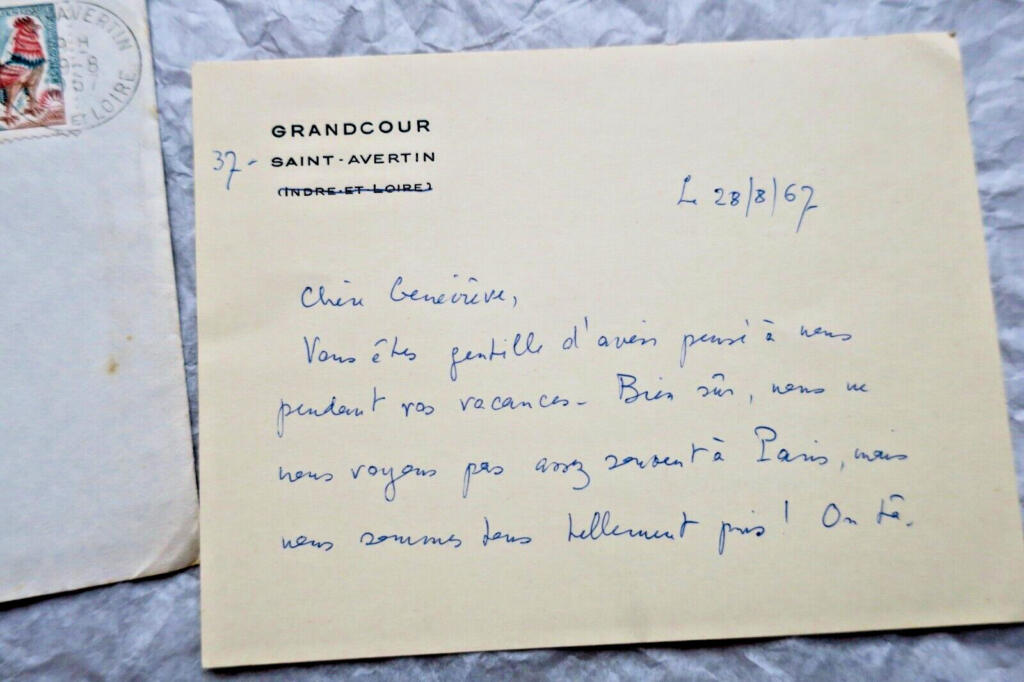 AVERTIN
ET LOIRE
GRANDCOUR
37- SAINT-AVERTIN
(INDRE-ET-LOIRE)
Le 28/8/67
Chère Geneviève,
Vous êtes gentille d'avoir pensé à nous
pendant vos vacances. Bien sûr, nous ne
nous voyons pas assez souvent à Paris, mais
nous sommes tous tellement pris! On tâ-